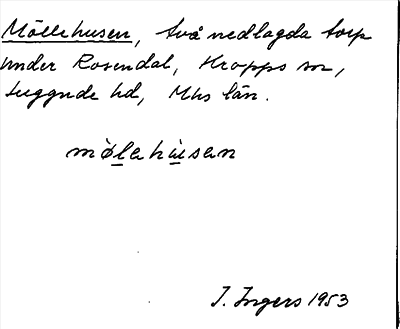 Möllehusen, två nedlagda torp
under Rosendal, Kropps sn,
Luggude hd, Mhs län.
mø̀lehu̇sen
I. Ingers 1953